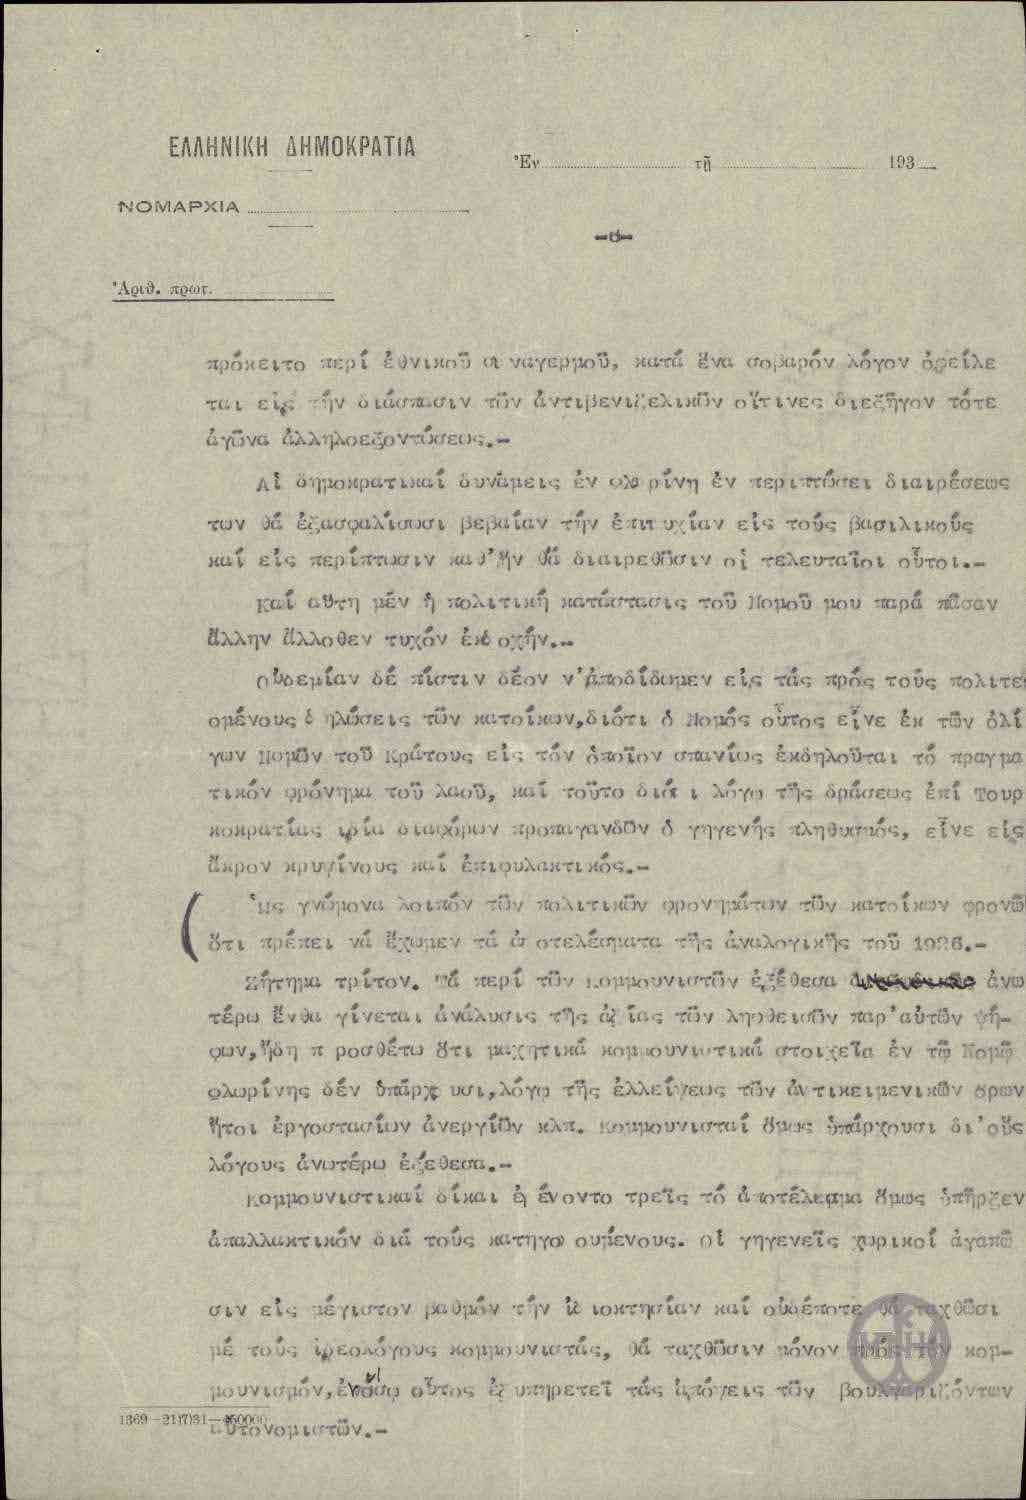 ΕΛΛΗΝΙΚΗ ΔΗΜΟΚΡΑΤΙΑ
Ἐν τῇ 193
ΝΟΜΑΡΧΙΑ
Ἀριθ. πρωτ.
πρόκειτο περί ἐθνικοῦ συναγερμοῦ, κατά ἕνα σοβαρόν λόγον ὀφείλε
ται εἰς τήν διάσπασιν τῶν ἀντιβενιζελικῶν οἵτινες διεξῆγον τότε
ἀγῶνα ἀλληλοεξοντώσεως.-
Αἱ δημοκρατικαί δυνάμεις ἐν Φλωρίνῃ ἐν περιπτώσει διαιρέσεως
των θά ἐξασφαλίσωσι βεβαίαν τήν ἐπιτυχίαν εἰς τούς βασιλικούς
καί εἰς περίπτωσιν καθ'ἥν θά διαιρεθῶσιν οἱ τελευταῖοι οὗτοι.-
Καί αὕτη μέν ἡ πολιτική κατάστασις τοῦ Νομοῦ μου παρά πᾶσαν
ἄλλην ἄλλοθεν τυχόν ἐκδοχήν.-
Οὐδεμίαν δέ πίστιν δέον ν'ἀποδίδωμεν εἰς τάς πρός τούς πολιτε
ομένους δηλώσεις τῶν κατοίκων,διότι ὁ Νομός οὗτος εἶνε ἐκ τῶν ὀλί
γων Νομῶν τοῦ Κράτους εἰς τόν ὁποῖον σπανίως ἐκδηλοῦται τό πραγμα
τικόν φρόνημα τοῦ λαοῦ, καί τοῦτο διότι λόγῳ τῆς δράσεως ἐπί Τουρ
κοκρατίας ἰδία διαφόρων προπαγανδῶν ὁ γηγενής πληθυσμός, εἶνε εἰς
ἄκρον κρυψίνους καί ἐπιφυλακτικός.-
Ὡς γνώμονα λοιπόν τῶν πολιτικῶν φρονημάτων τῶν κατοίκων φρονῶ
ὅτι πρέπει νά ἔχωμεν τά ἀποτελέσματα τῆς ἀναλογικῆς τοῦ 1926.-
Ζήτημα τρίτον. Τά περί τῶν Κομμουνιστῶν ἐξέθεσα ἀνω
τέρω ἔνθα γίνεται ἀνάλυσις τῆς ἀξίας τῶν ληφθεισῶν παρ'αὐτῶν ψή-
φων,ἤδη προσθέτω ὅτι μαχητικά κομμουνιστικά στοιχεῖα ἐν τῷ Νομῷ
Φλωρίνης δέν ὑπάρχουσι,λόγῳ τῆς ἐλλείψεως τῶν ἀντικειμενικῶν ὅρων
ἤτοι ἐργοστασίων ἀνεργιῶν κλπ. Κομμουνισταί ὅμως ὑπάρχουσι δι'οὕς
λόγους ἀνωτέρω ἐξέθεσα.-
Κομμουνιστικαί δίκαι ἐγένοντο τρεῖς τό ἀποτέλεσμα ὅμως ὑπῆρξεν
ἀπαλλακτικόν διά τούς κατηγορουμένους. Οἱ γηγενεῖς χωρικοί ἀγαπῶ
σιν εἰς μέγιστον βαθμόν τήν ἰδιοκτησίαν καί οὐδέποτε θά ταχθῶσι
μέ τούς ἰδεολόγους κομμουνιστάς, θά ταχθῶσιν μόνον πρός τόν κομ-
μουνισμόν,ἐνόσῳ οὗτος ἐξυπηρετεῖ τάς ἀπόψεις τῶν βουλγαριζόντων
αὐτονομιστῶν.-